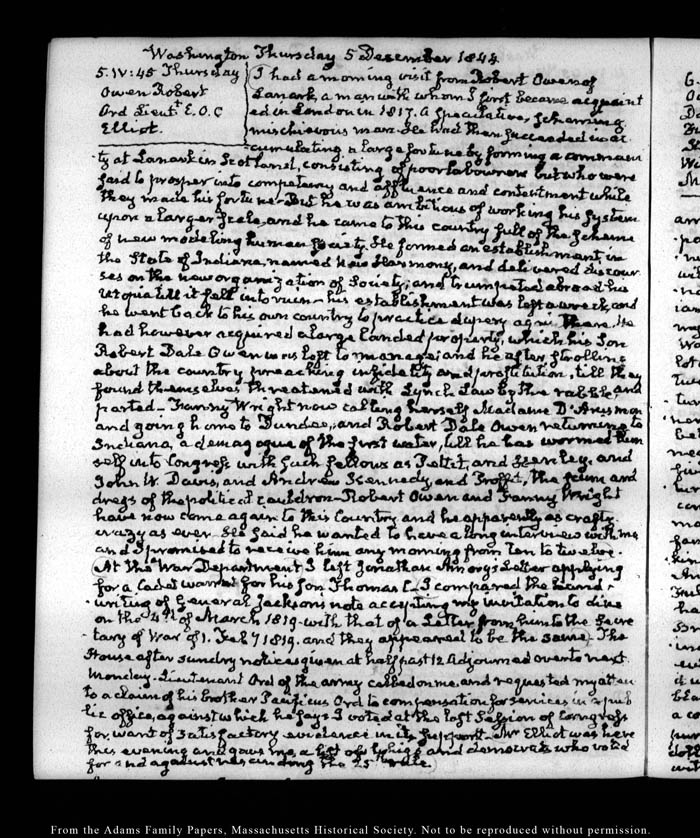 Washington Thursday 5 December 1844.
5. IV:45 Thursday
Owen Robert
Ord Lieut.t E.O.C
Elliot.
I had a morning visit from Robert Owen of
Lanark, a man with whom I first became acquaint
ed in London in 1817. A speculative, scheming,
mischievous man. He had then succeeded in ac
cumulating a large fortune by forming a communi
ty at Lanark in Scotland, consisting of poor labourers but who were
said to prosper into competency and affluence and contentment while
they made his fortune. But he was ambitious of working his system
upon a larger scale, and he came to this country full of the scheme
of new modeling human society. He formed an establishment in
the State of Indiana, named New Harmony, and delivered discour
ses on the new organization of Society, and trumpeted abroad his
Utopia till it fell into ruin - his establishment was left a wreck, and
he went back to his own country to practice dupery again there. He
had however acquired a large landed property, which his Son
Robert Dale Owen was left to manage; and he after strolling
about the country preaching infidelity and prostitution, till they
found themselves threatened with Lynch Law by the rabble, and
parted - Fanny Wright now calling herself Madame D'Arusmon
and going home to Dundee, and Robert Dale Owen returning to
Indiana, a demagogue of the first water, till he has wormed him
self into Congress with such fellows as Pettit, and Henley, and
John W. Davis, and Andrew Kennedy, and Proffit, the scum and
dregs of the political cauldron - Robert Owen and Fanny Wright
have now come again to this Country and he apparently as crafty
crazy as ever. He said he wanted to have a long interview with me
and I promised to receive him any morning from ten to twelve.
At the War Department I left Jonathan Amory's Letter applying
for a Cadet warrant for his son Thomas C. I compared the hand
writing of General Jackson's note accepting my invitation to dine
on the 4th of March 1819. with that of a Letter from him to the Secre
tary of War of 1. Feby 1819. and they appeared to be the same. The
House after sundry notices given at half past 12 Adjourned over to next
Monday. Lieutenant Ord of the army called on me, and requested my atten
to a claim of his brother Pacificus Ord to compensation for services in a pub
lic office, against which he says I voted at the last Session of Congress
for want of satisfactory evidence in its support. Mr Elliot was here
this evening and gave me a list of whigs and democrats who voted
for and against rescinding the 25th rule.
From the Adams Family Papers, Massachusetts Historical Society. Not to be reproduced without permission.